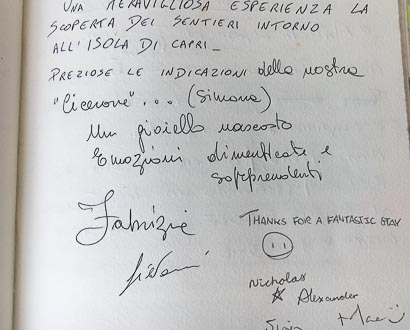 UNA MERAVIGLIOSA ESPERIENZA LA
SCOPERTA DEI SENTIERI INTORNO
ALL'ISOLA DI CAPRI_
PREZIOSE LE INDICAZIONI della nostra
"Cicerone"... (Simona)
Un gioiello nascosto
Emozioni dimenticate e
sorprendenti
Fabrizio
THANKS FOR A FANTASTIC STAY
Nicholas
Alexander